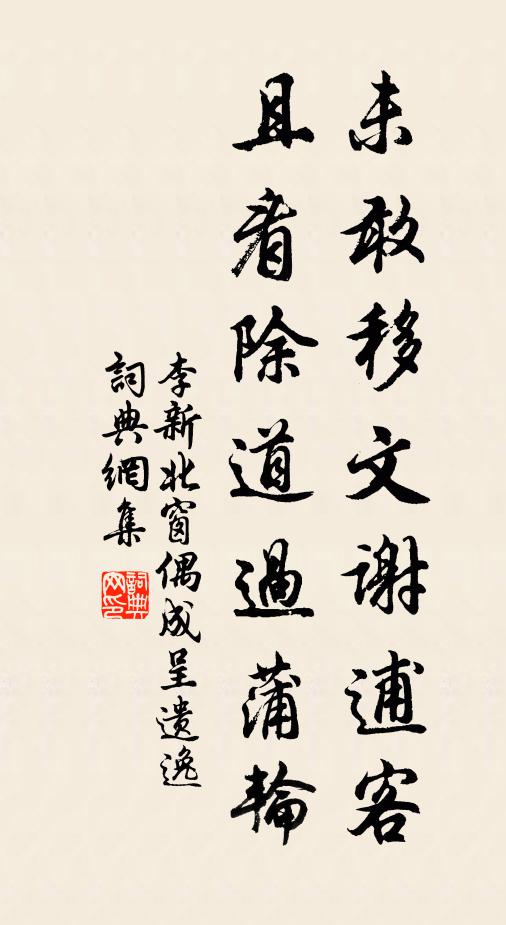 未敢移文谢逋客
且看除道過蒲輪
李新北窗偶成呈遗逸
詞典網集
詞典网印